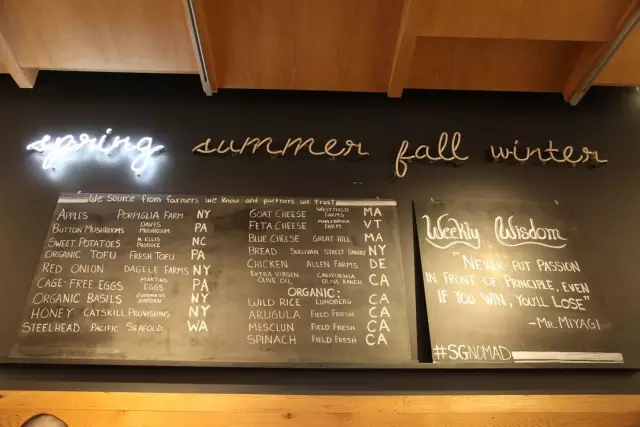 spring summer fall winter
We Source from farmers we Know and partners we trust
APPLES PORPIGLIA FARM NY
BUTTON MUSHROOMS DAVIS MUSHROOM PA
SWEET POTATOES N. ELLIS PRODUCE NC
ORGANIC TOFU FRESH TOFU PA
RED ONION DAGELE FARMS NY
CAGE-FREE EGGS MARTINS EGGS PA
ORGANIC BASILS GARDEN NY
HONEY CATSKILL PROVISIONS NY
STEELHEAD PACIFIC SEAFOOD WA
GOAT CHEESE WESTFIELD FARMS MA
FETA CHEESE MAPLEBROOK FARM VT
BLUE CHEESE GREAT HILL MA
BREAD SULLIVAN STREET BAKERY NY
CHICKEN ALLEN FARMS DE
EXTRA VIRGIN OLIVE OIL CALIFORNIA OLIVE RANCH CA
ORGANIC:
WILD RICE LUNDBERG CA
ARUGULA FIELD FRESH CA
MESCLUN FIELD FRESH CA
SPINACH FIELD FRESH CA
Weekly Wisdom
"NEVER PUT PASSION
IN FRONT OF PRINCIPLE, EVEN
IF YOU WIN, YOU'LL LOSE"
-MR. MIYAGI
#SGNOMAD